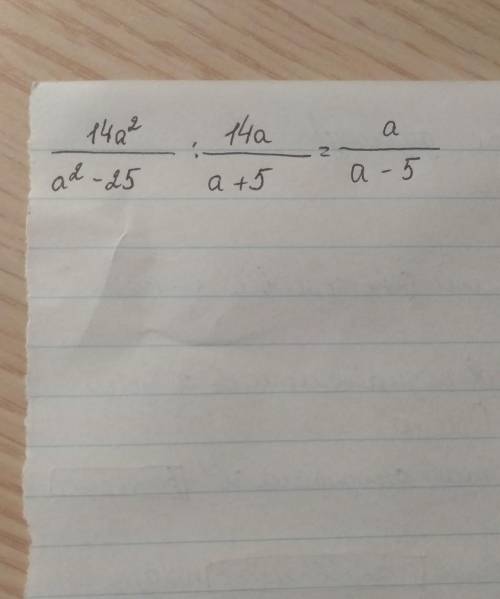 14a² / a² - 25 : 14a / a + 5 = a / a - 5